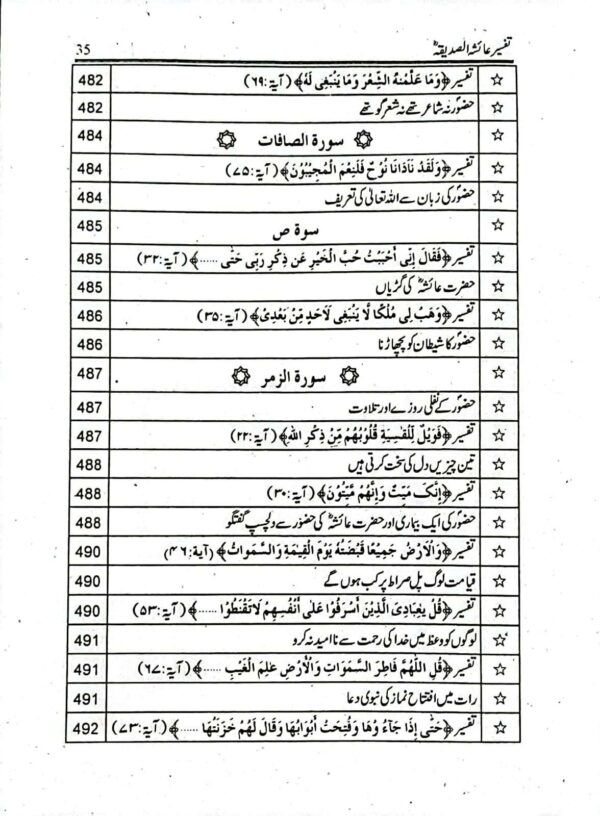 تفسیر عائشہ الصدیقہؓ 35
☆ تفسیر ﴿وَمَا عَلَّمْنٰهُ الشِّعْرَ وَمَا يَنْبَغِي لَهُ﴾ (آیۃ:۶۹) 482
☆ حضورؐ نہ شاعر تھے نہ شعر گو تھے 482
☆ سورة الصافات 484
☆ تفسیر ﴿وَلَقَدْ نَادَانَا نُوْحٌ فَلَنِعْمَ الْمُجِيْبُوْنَ﴾ (آیۃ:۷۵) 484
☆ حضورؐ کی زبان سے اللہ تعالیٰ کی تعریف 484
☆ سوة ص 485
☆ تفسیر ﴿فَقَالَ اِنِّى اَحْبَبْتُ حُبَّ الْخَيْرِ عَن ذِكْرِ رَبِّى حَتّٰى ......﴾ (آیۃ:۳۲) 485
☆ حضرت عائشہؓ کی گڑیاں 485
☆ تفسیر ﴿وَهَبْ لِى مُلْكًا لَّا يَنْبَغِى لِاَحَدٍ مِّنْ بَعْدِىْ﴾ (آیۃ:۳۵) 486
☆ حضورؐ کا شیطان کو پچھاڑنا 486
☆ سورة الزمر 487
☆ حضورؐ کے نفلی روزے اور تلاوت 487
☆ تفسیر ﴿فَوَيْلٌ لِّلْقٰسِيَةِ قُلُوْبُهُمْ مِّنْ ذِكْرِ اللّٰهِ﴾ (آیۃ:۲۲) 487
☆ تین چیزیں دل کی سخت کرتی ہیں 488
☆ تفسیر ﴿اِنَّکَ مَيِّتٌ وَّاِنَّهُمْ مَّيِّتُوْنَ﴾ (آیۃ:۳۰) 488
☆ حضورؐ کی ایک بیماری اور حضرت عائشہؓ کی حضورؐ سے دلچسپ گفتگو 488
☆ تفسیر ﴿وَالْاَرْضُ جَمِيْعًا قَبْضَتُهٗ يَوْمَ الْقِيٰمَةِ وَالسَّمٰوَاتُ﴾ (آیۃ:۴۶) 490
☆ قیامت لوگ پل صراط پر کب ہوں گے 490
☆ تفسیر ﴿قُلْ يٰعِبَادِىَ الَّذِيْنَ اَسْرَفُوْا عَلٰى اَنْفُسِهِمْ لَاتَقْنَطُوْا ......﴾ (آیۃ:۵۳) 490
☆ لوگوں کو وعظ میں خدا کی رحمت سے ناامید نہ کرو 491
☆ تفسیر ﴿قُلِ اللّٰهُمَّ فَاطِرَ السَّمٰوَاتِ وَالْاَرْضِ عٰلِمَ الْغَيْبِ ......﴾ (آیۃ:۶۷) 491
☆ رات میں افتتاح نماز کی نبوی دعا 491
☆ تفسیر ﴿حَتّٰى اِذَا جَآءُ وْهَا وَفُتِحَتْ اَبْوَابُهَا وَقَالَ لَهُمْ خَزَنَتُهَا ......﴾ (آیۃ:۷۳) 492